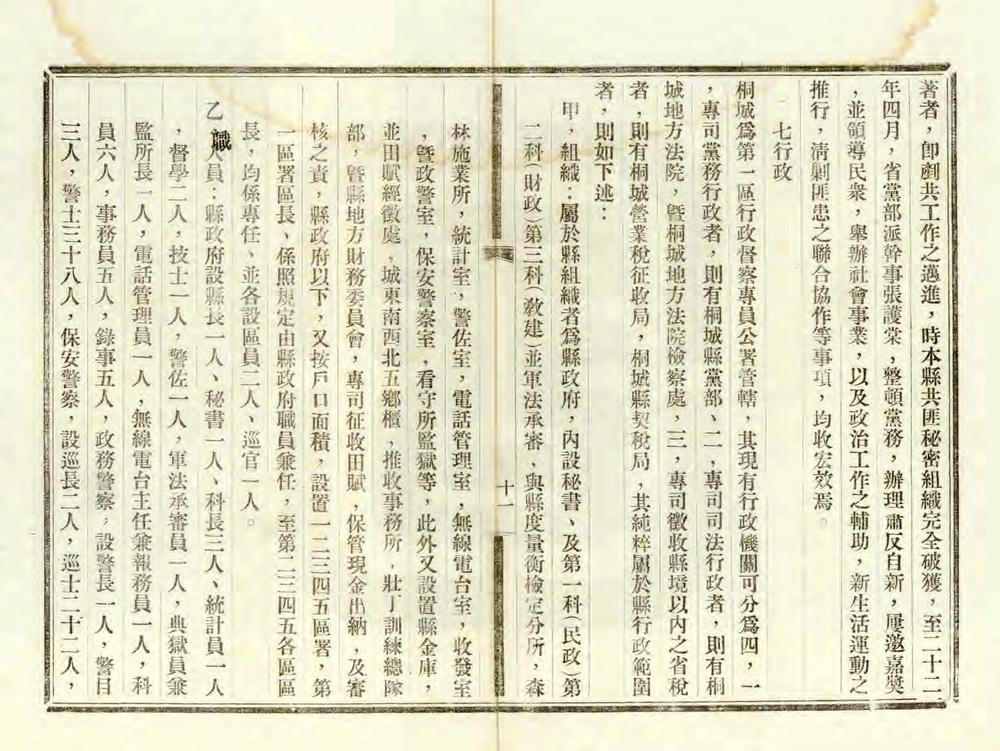 著者，卽剷共工作之邁進，時本縣共匪秘密組織完全破獲，至二十二
年四月，省黨部派幹事張護棠，整頓黨務，辦理肅反自新，屢邀嘉獎
，並領導民衆，舉辦社會事業，以及政治工作之輔助，新生活運動之
推行，淸剿匪患之聯合協作等事項，均收宏效焉。
七行政
桐城爲第一區行政督察專員公署管轄，其現有行政機關可分爲四，一
，專司黨務行政者，則有桐城縣黨部、二，專司司法行政者，則有桐
城地方法院，曁桐城地方法院檢察處，三，專司徵收縣境以內之省稅
者，則有桐城營業稅征收局，桐城縣契稅局，其純粹屬於縣行政範圍
者，則如下述：
甲，組織：屬於縣組織者爲縣政府，內設秘書、及第一科（民政）第
二科（財政）第三科（敎建）並軍法承審，與縣度量衡檢定分所，森
十一
林施業所，統計室，警佐室，電話管理室，無線電台室，收發室
，曁政警室，保安警察室，看守所監獄等，此外又設置縣金庫，
並田賦經徵處，城東南西北五鄉櫃，推收事務所，壯丁訓練總隊
部，曁縣地方財務委員會，專司征收田賦，保管現金出納，及審
核之責，縣政府以下，又按戶口面積，設置一二三四五區署，第
一區署區長、係照規定由縣政府職員兼任，至第二三四五各區區
長，均係專任、並各設區員二人、巡官一人。
乙職人員：縣政府設縣長一人、秘書一人、科長三人、統計員一人
，督學二人，技士一人，警佐一人，軍法承審員一人，典獄員兼
監所長一人，電話管理員一人，無線電台主任兼報務員一人，科
員六人，事務員五人，錄事五人，政務警察，設警長一人，警目
三人，警士三十八人，保安警察，設巡長二人，巡士二十二人，